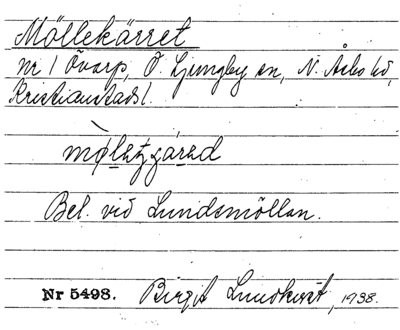 Möllekärret
nr 1 Övarp, Ö. Ljungby sn, N. Åsbo hd,
Kristianstads l.
Bel. vid Lundsmöllan.
Nr 5498. Birgit Lundkvist, 1938.